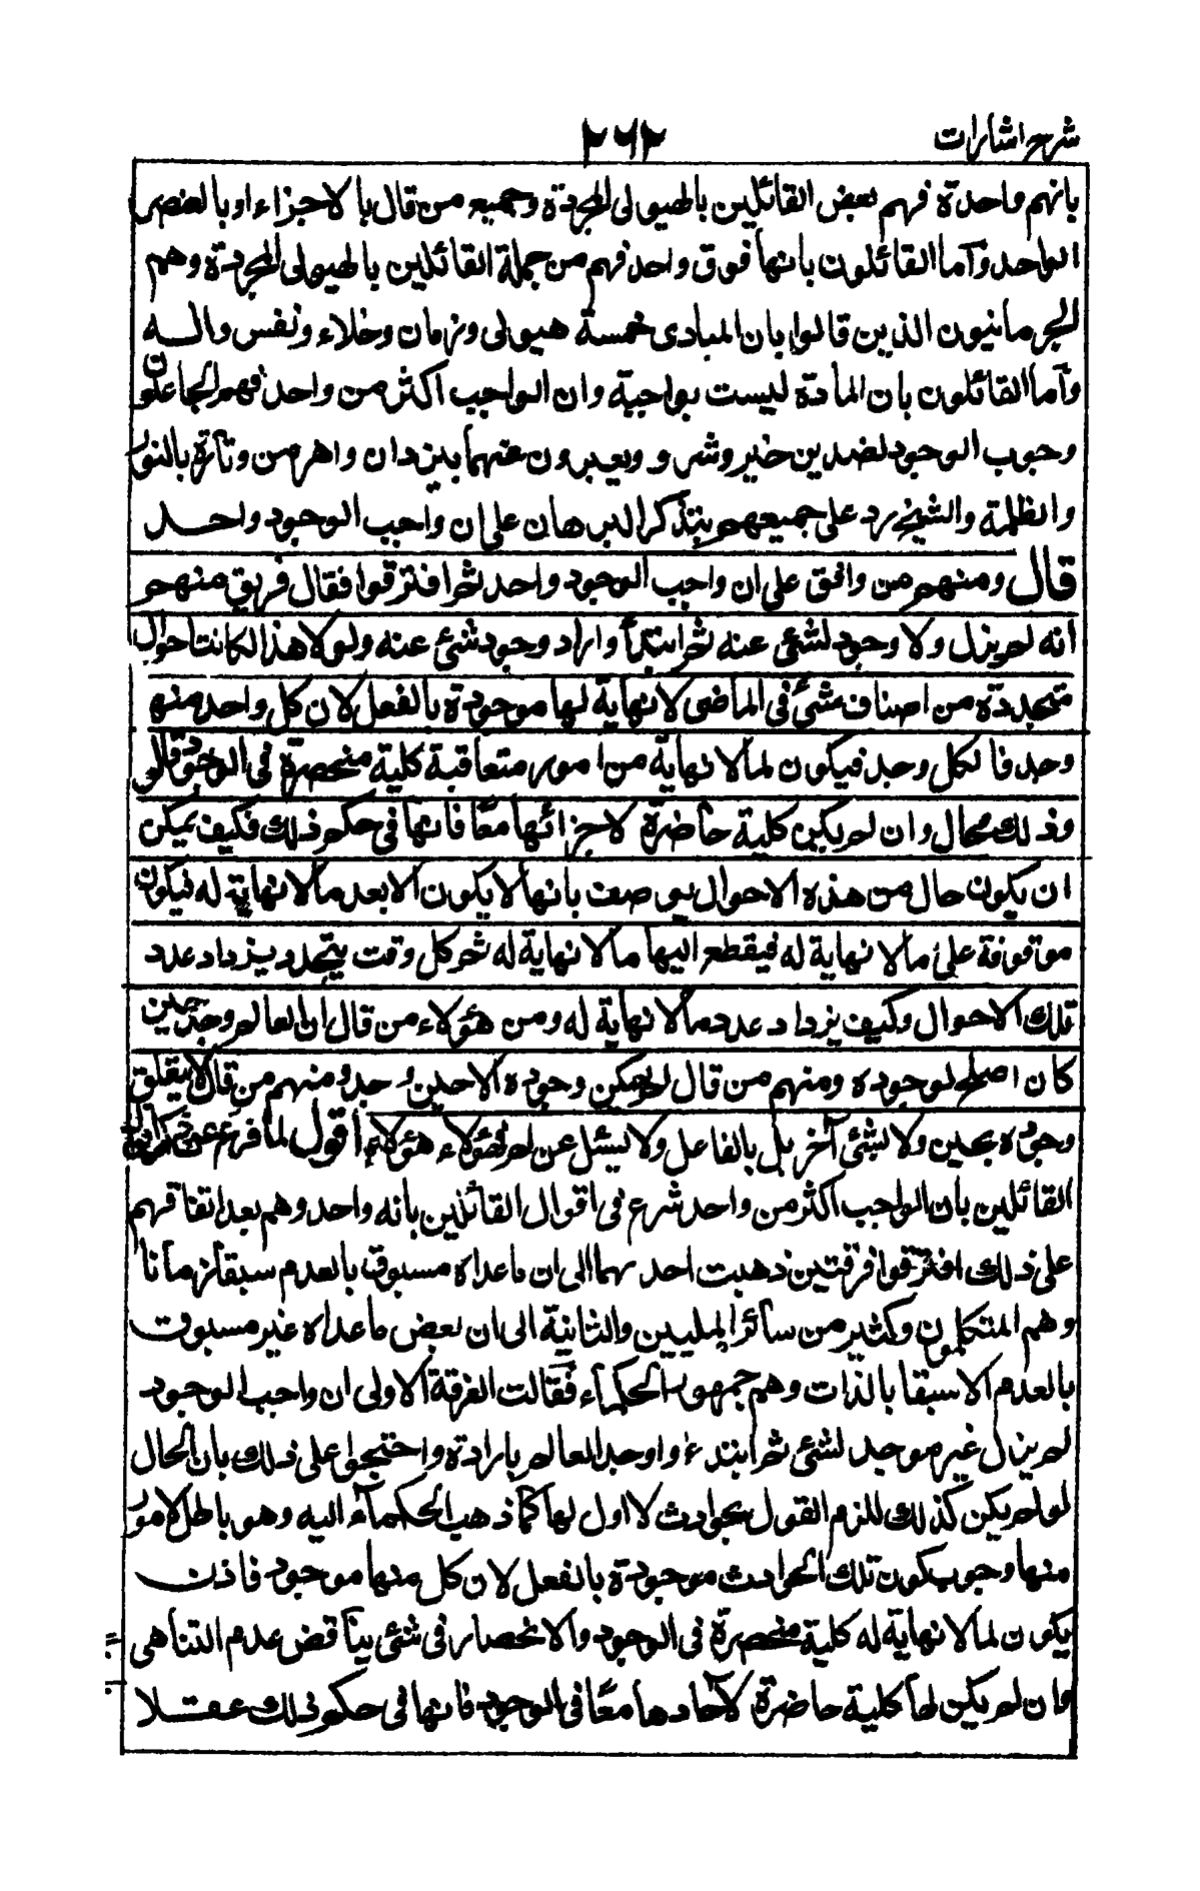 شرح اشارات
٢٦٢
بانهم واحدة فهم بعض القائلين بالهيولى المجردة وجميع من قال بالاجزاء او بالعنصر
الواحد وآما القائلون بانها فوق واحد فهم من جملة القائلين بالهيولى المجردة وهم
الحرمانيون الذين قالوا بان المبادى خمسة هيولى وزمان وخلاء ونفس واله
وآما القائلون بان المادة ليست بواجبة وان الواجب اكثر من واحد فهم الجاعلون
وجوب الوجود لضدين خير وشر و ويعبرون عنهما بيزدان واهرمن وتارة بالنور
والظلمة والشيخ رد على جميعهم بتذكر البرهان على ان واجب الوجود واحد
قال ومنهم من وافق على ان واجب الوجود واحد ثم افترقوا فقال فريق منهم
انه لم يزل ولا وجود لشئ عنه ثم ابتدأ واراد وجود شئ عنه ولولا هذا لكانت احوال
متجددة من اصناف شئ فى الماضى لا نهاية لها موجودة بالفعل لان كل واحد منها
وجد فالكل وجد فيكون لما لا نهاية من امور متعاقبة كلية منحصرة فى الوجود قالوا
وذلك محال وان لم يكن كلية حاضرة لاجزائها معًا فانها فى حكم ذلك فكيف يمكن
ان يكون حال من هذه الاحوال يوصف بانها لا يكون الا بعد ما لا نهاية له فيكون
موقوفة على ما لا نهاية له فيقطع اليها ما لا نهاية له ثم كل وقت يتجدد يزداد عدد
تلك الاحوال وكيف يزداد عدد ما لا نهاية له ومن هؤلاء من قال ان العالم وجد حين
كان اصلح لوجوده ومنهم من قال لم يمكن وجوده الا حين وجد ومنهم من قال لا يتعلق
وجوده بحين ولا بشئ آخر بل بالفاعل ولا يسئل عن لم فهؤلاء هؤلاء اقول لما فرغ عن ذكر
القائلين بان الواجب اكثر من واحد شرع فى اقوال القائلين بانه واحد وهم بعد اتفاقهم
على ذلك افترقوا فرقتين ذهبت احدىهما الى ان ماعداه مسبوق بالعدم سبقا زمانا
وهم المتكلمون وكثير من سائر المليين والثانية الى ان بعض ماعداه غير مسبوق
بالعدم الا سبقا بالذات وهم جمهور الحكمآء فقالت الفرقة الاولى ان واجب الوجود
لم يزل غير موجد لشئ ثم ابتدء واوجد العالم بارادة واحتجوا على ذلك بان الحال
لو لم يكن كذلك للزم القول بحوادث لا اول لها كما ذهب الحكمآء اليه وهو باطل لامور
منها وجوب كون تلك الحوادث موجودة بالفعل لان كل منها موجود فاذن
يكون لما لا نهاية له كلية منحصرة فى الوجود والانحصار فى شئ يناقض عدم التناهى
وان لم يكن لها كلية حاضرة لآحادها معًا فى الوجود فانها فى حكم ذلك عقلا